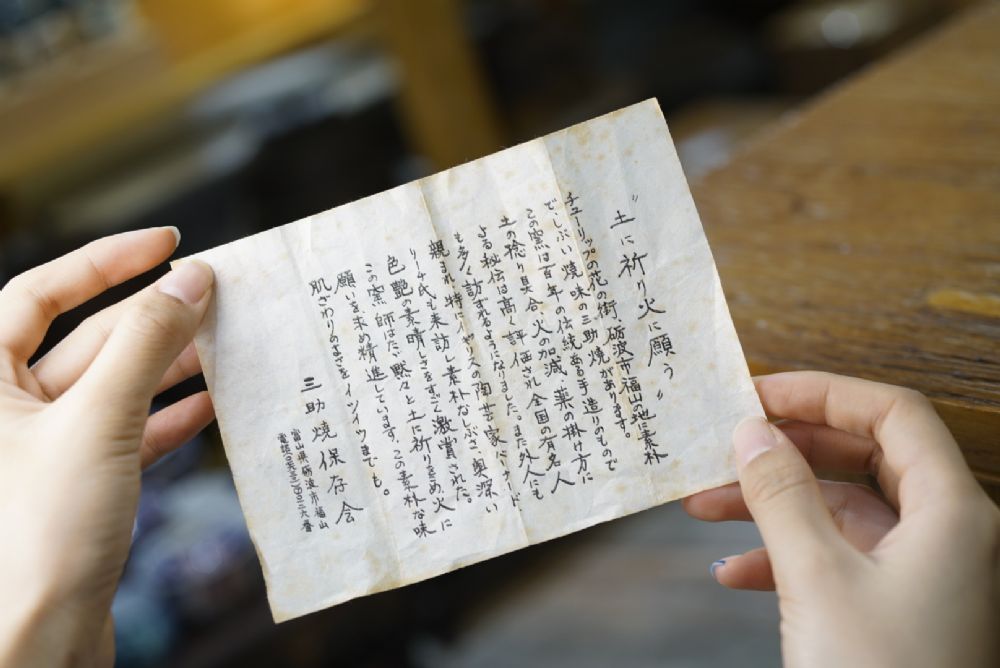 〝土に祈り火に願う〟
チューリップの花の街、砺波市福山の地に素朴
で、しぶい焼味の三助焼があります。
この窯は百年の伝統ある手造りのもので
土の捻り具合、火の加減、薬の掛け方に
よる秘伝は高く評価され全国の有名人
も多く訪まれるようになりました。また外人にも
親まれ、特にイギリスの陶芸家、バーナード、
リーチ氏も来訪し素朴なしぶさ、奥深い
色艶の素晴しさをすごく激賞された。
この窯の師はただ黙々と土に祈りをこめ、火に
願いを求め精進しています。この素朴な味
肌ざわりのよさをイツイツまでも。
三助焼保存会
富山県砺波市福山